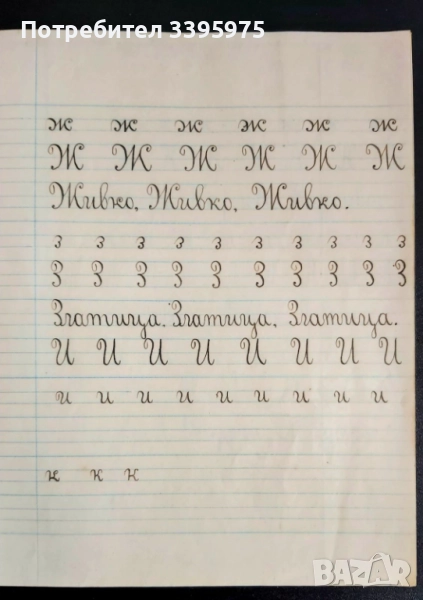 Потребител 3395975
ж ж ж ж ж ж
Ж Ж Ж Ж Ж Ж
Живко, Живко, Живко.
з з з з з з з з з з
З З З З З З З З З З
Златица. Златица, Златица.
И И И И И И И И
и и и и и и и и и
к к к
BAZAR